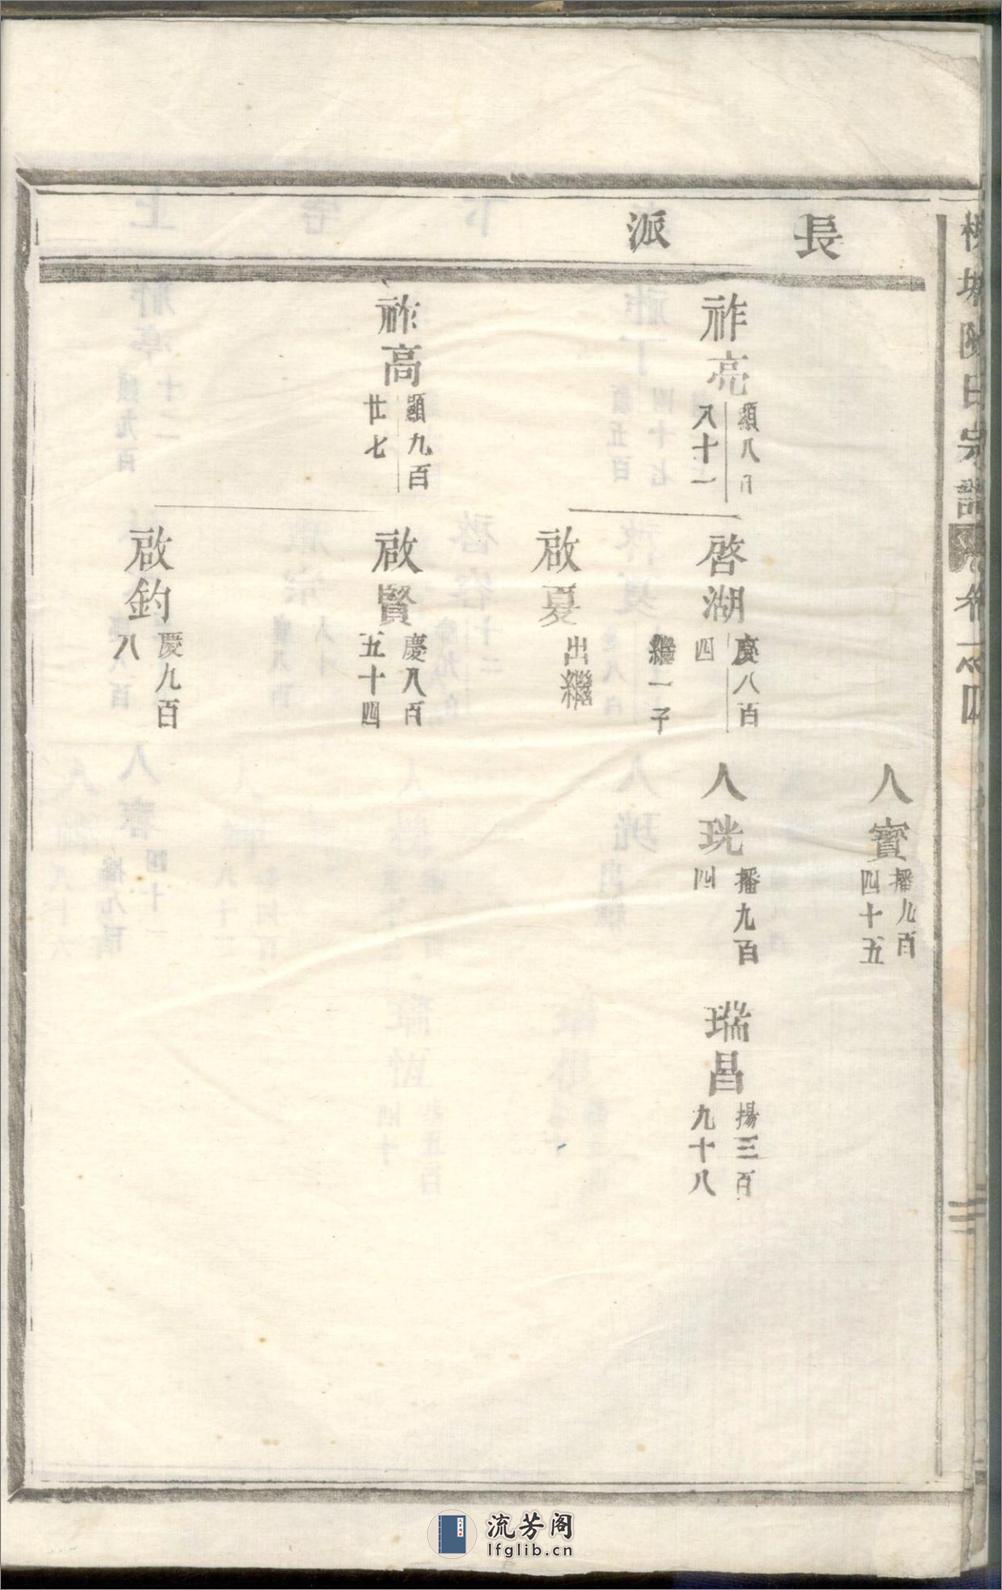 陳氏宗譜
卷一之四
長派
人寶
播九百
四十五
祚亮
顯八百
八十一
啓湖
慶八百
四
繼一子
人珖
播九百
四
瑞昌
揚三百
九十八
啟夏
出繼
祚高
顯九百
廿七
啟賢
慶八百
五十四
啟鈞
慶九百
八
流芳阁
lfglib.cn